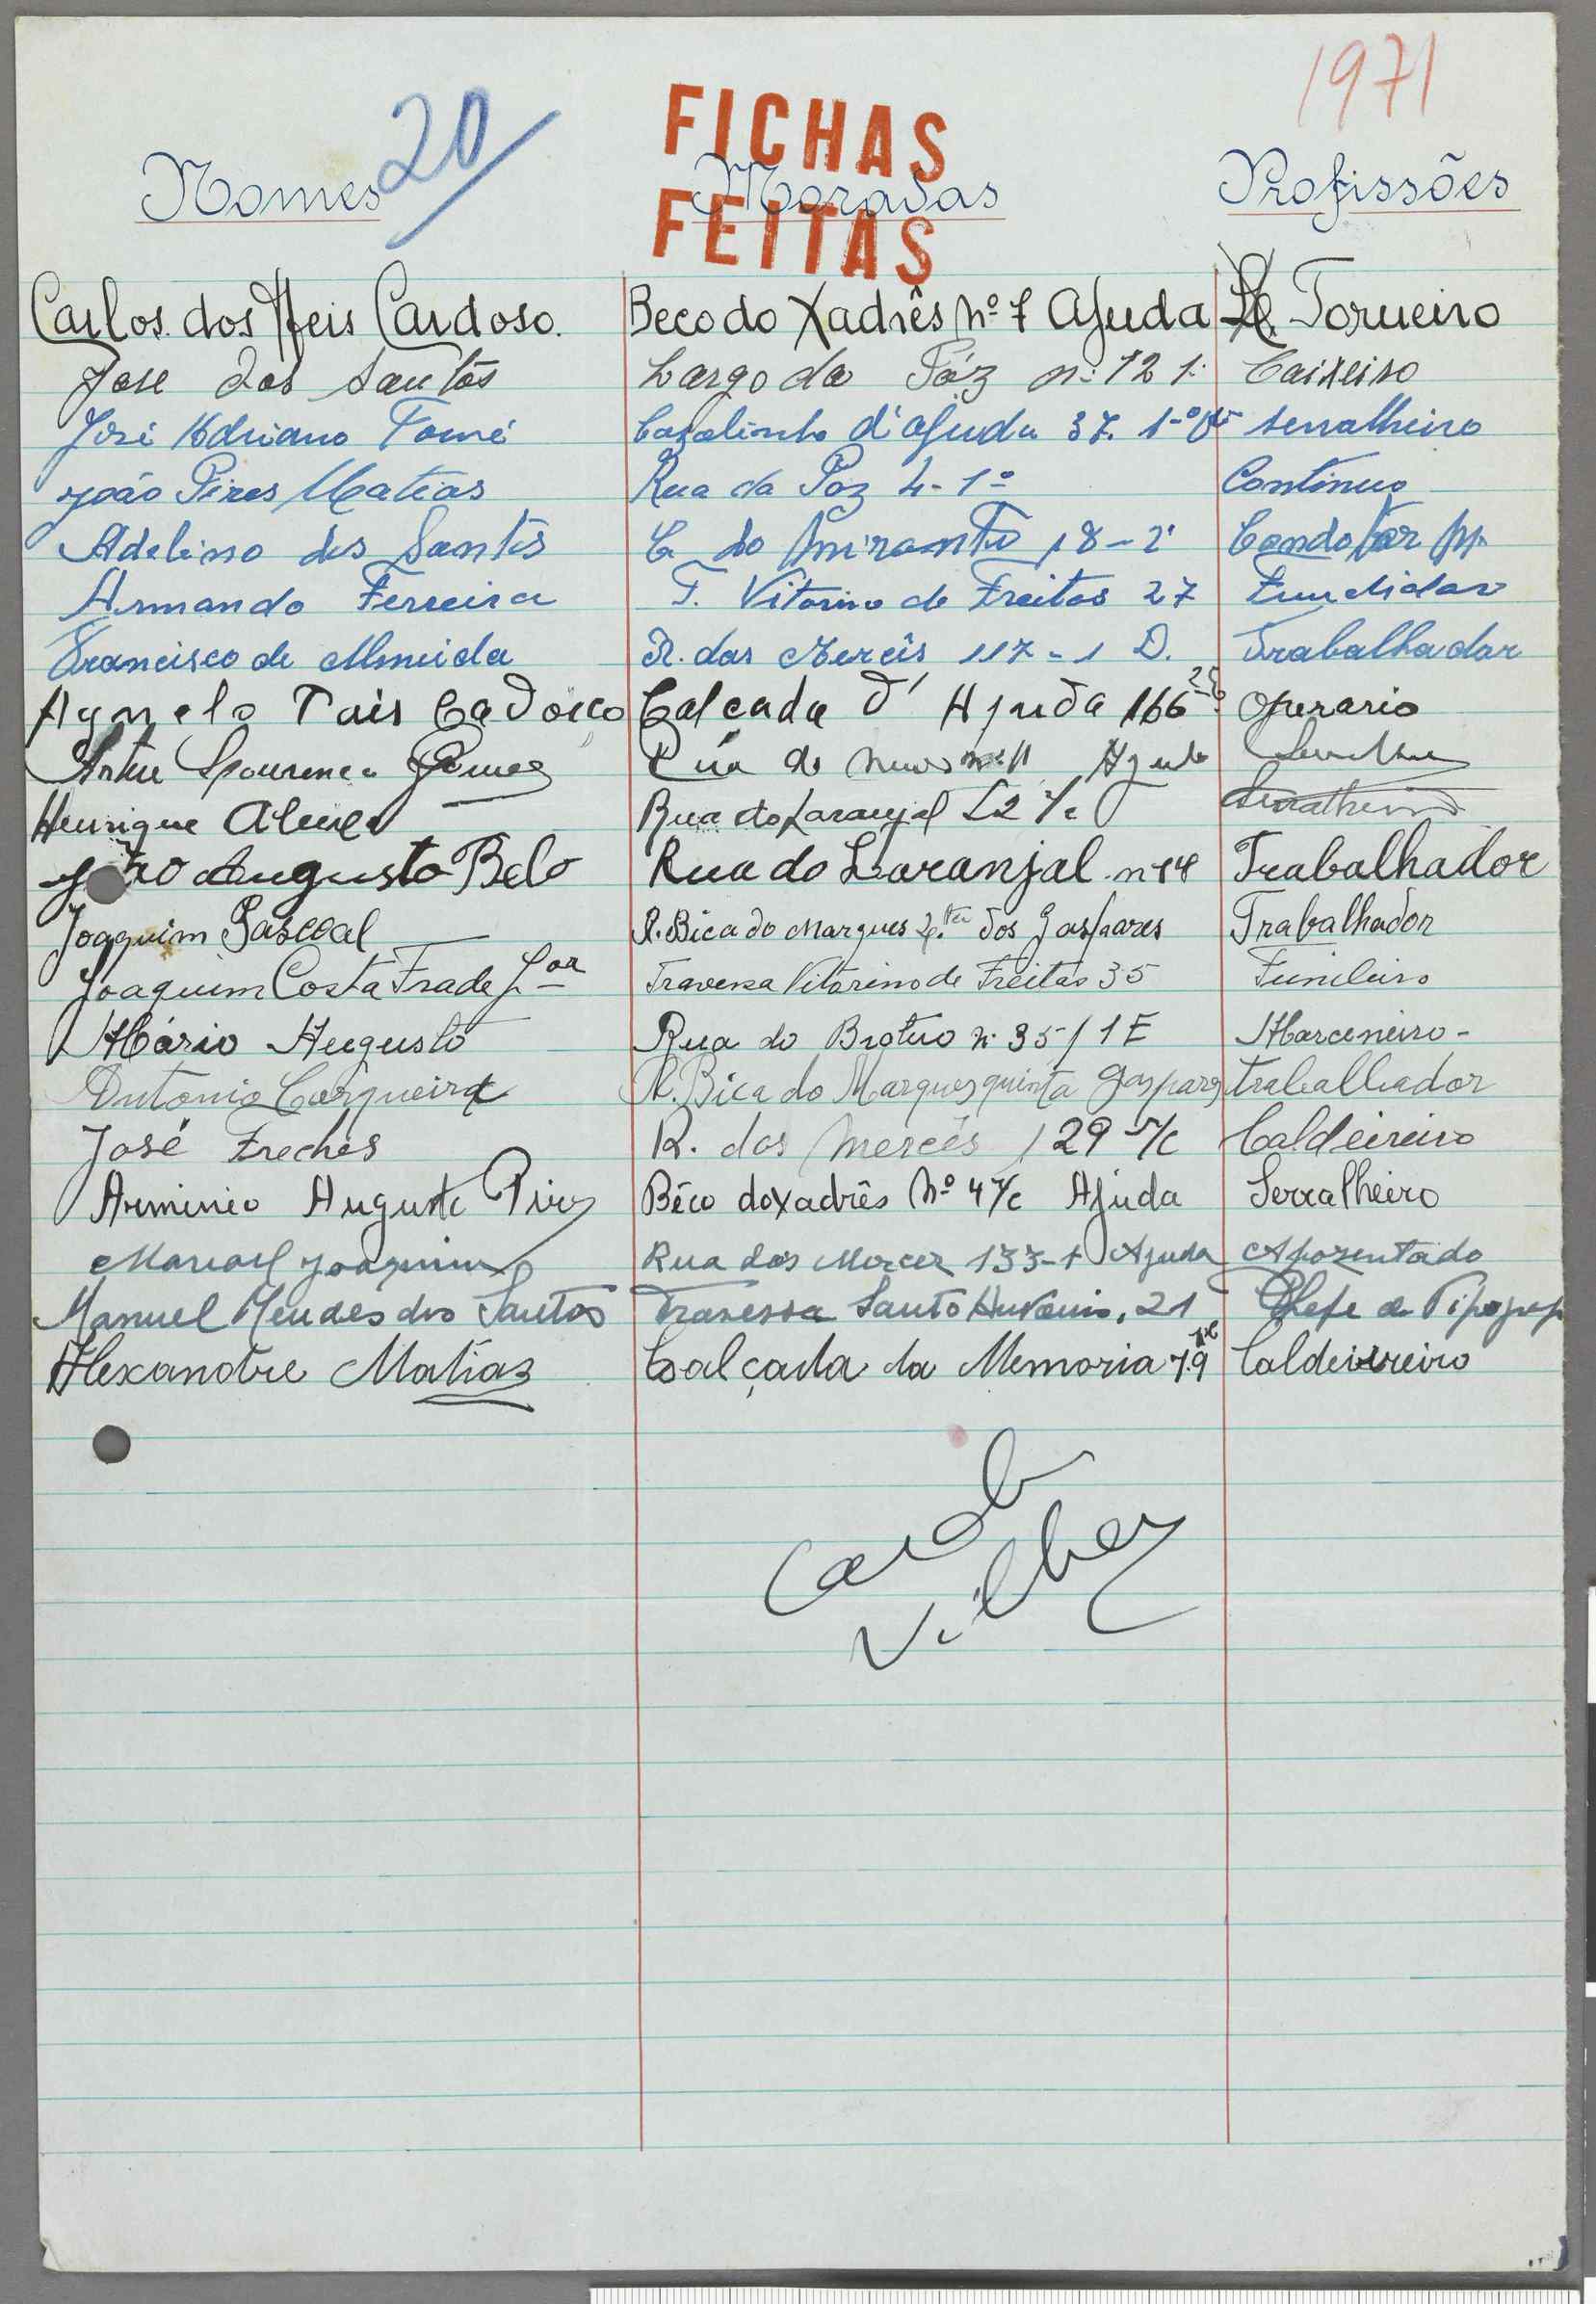 1971
20
FICHAS
FEITAS
Nomes Moradas Profissões
Carlos dos Reis Cardoso. Beco do Xadrês nº 7 Ajuda Torneiro
José dos Santos Largo da Fóz nº 12 1º Caixeiro
José Adriano Tomé Casalinho d'Ajuda 37. 1º serralheiro
João Pires Matias Rua da Paz 4-1º Contínuo
Adelino dos Santos C. do Mirante 18-2º Condotor
Armando Ferreira T. Vitorino de Freitas 27 Fundidor
Francisco de Almeida R. das Mercês 117-1 D. Trabalhador
Agnelo Pais Calçada d'Ajuda 166 operario
Artur Lourenço Gomes Rua do nº 11 Ajuda
Henrique Rua do Laranjal 22 r/c Serralheiro
João Augusto Belo Rua do Laranjal nº 14 Trabalhador
Joaquim Pascoal R. Bica do Marques qta dos Gaspares Trabalhador
Joaquim Costa Frade Jor Travessa Vitorino de Freitas 35 Funileiro
Mário Augusto Rua do Brotero nº 35/1E Marceneiro-
Antonio Cerqueira R. Bica do Marques quinta Gaspares trabalhador
José Freches R. das Mercês 129 r/c Caldeireiro
Arminio Augusto Pires Bêco do xadrês Nº 4 r/c Ajuda Serralheiro
Manoel Joaquim Rua das Merces 133-1 Ajuda Aposentado
Manuel Mendes dos Santos Travessa Santo Antonio, 21 Chefe de Tipograf
Alexandre Matias Calçada da Memoria 79 Caldeireiro